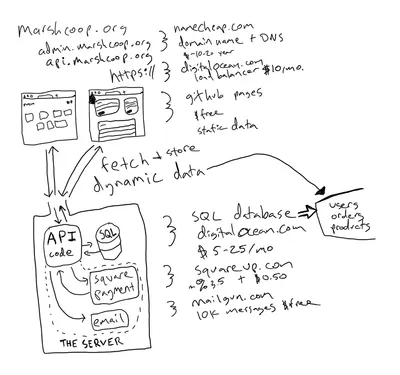 marshcoop.org
admin.marshcoop.org
api.marshcoop.org
https://
namecheap.com
domain name + DNS
$~10-20 year
digitalocean.com
load balancer $10/mo.
github pages
$free
static data
fetch + store
dynamic data
API
code
SQL
square
payment
email
THE SERVER
SQL database
digitalocean.com
$5-25/mo
users
orders
products
squareup.com
+ $0.50
mailgun.com
10K messages $free